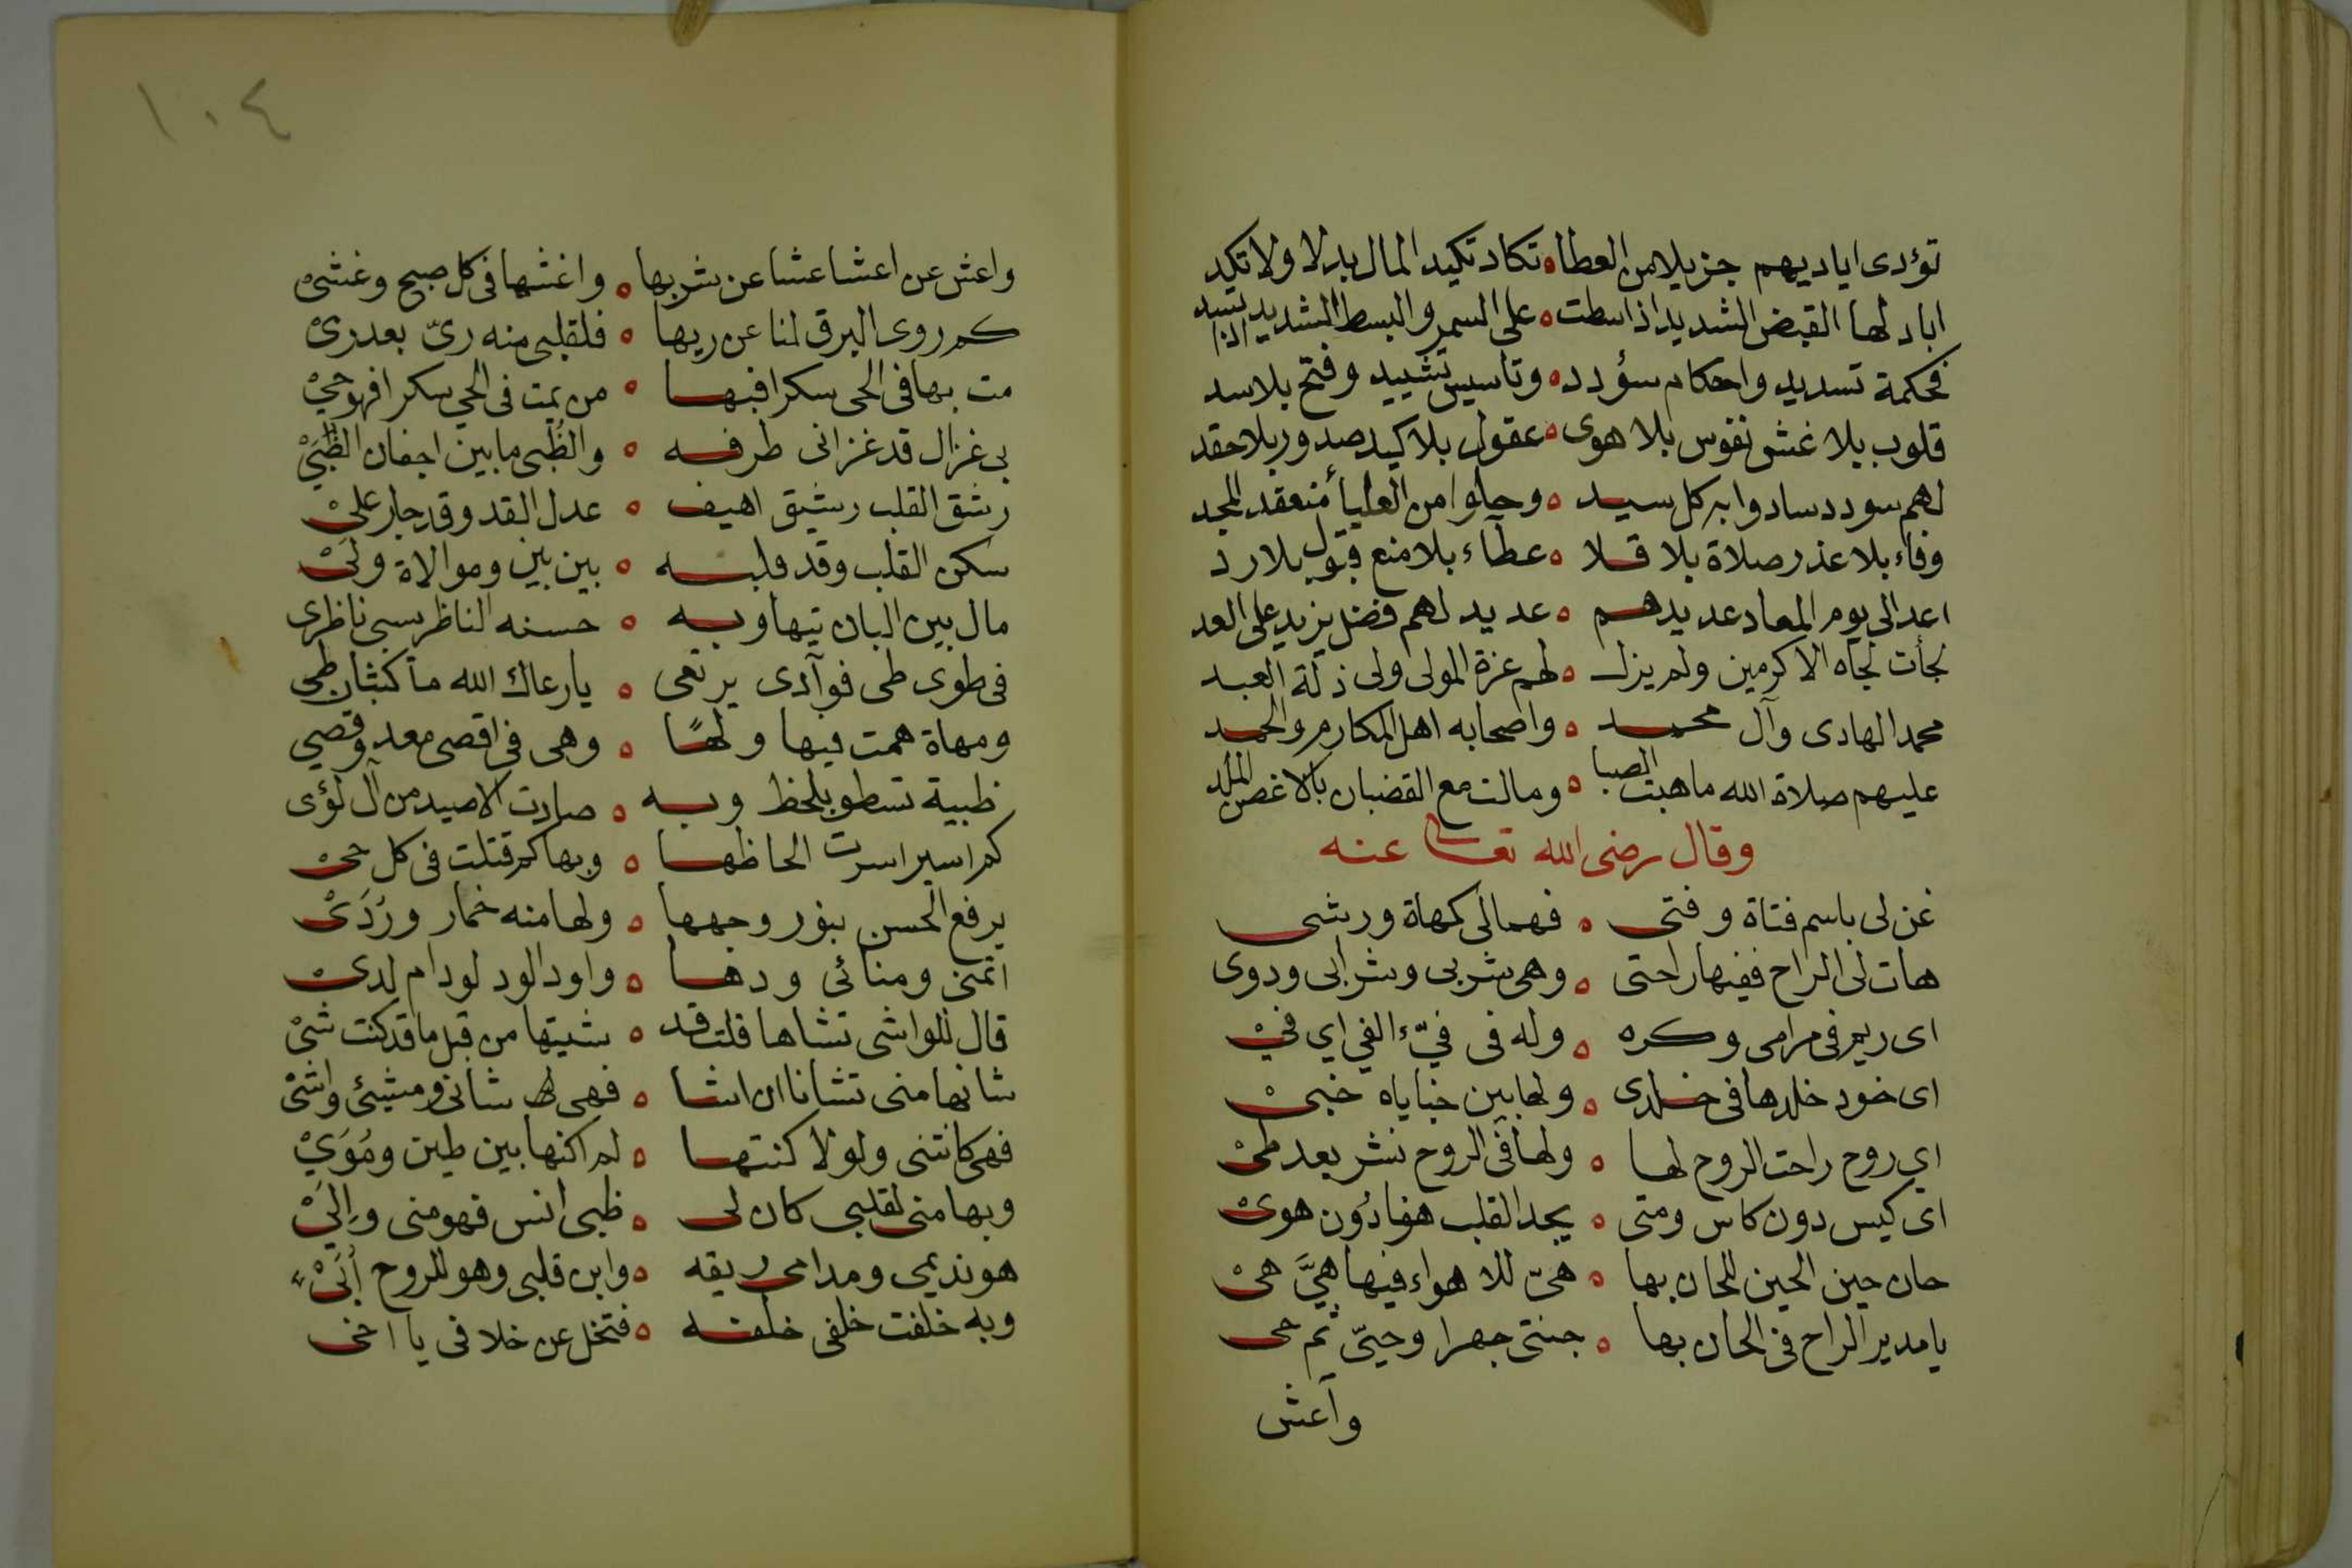 تؤدى اياديهم جزيلا من العطا ه تكاد تكيد المال بدلا ولا تكد
اباد لها القبض الشديد اذا سطت ه على السمر والبسط الشديد اذا
فحكمة تسديد واحكام سؤدد ه وتاسيس تشييد وفتح بلا سد
قلوب بلا غش نفوس بلا هوى ه عقول بلا كيد صدور بلا حقد
لهم سودد سادوا به كل سيد ه وحلوا من العليا منعقد المجد
وفاء بلا عذر صلاة بلا قلا ه عطآء بلا منع قبول بلا رد
اعد الى يوم المعاد عديدهم ه عديد لهم فضل يزيد على العد
لجأت لجاه الاكرمين ولم يزل ه لهم عزة المولى ولى ذلة العبد
محمد الهادى وآل محمد ه واصحابه اهل المكارم والحمد
عليهم صلاة الله ما هبت الصبا ه ومالت مع القضبان بالاغصن الملد
وقال رضى الله تعالى عنه
غن لى باسم فتاة وفتى ه فهما لى كمهاة ورشى
هات لى الراح ففيها راحتى ه وهى شربى وشرابى ودوى
اى ريم فى مرامى وكره ه وله فى فيّء الفي اي فيْ
اى خود خلدها فى خلدى ه ولها بين خباياه خبىْ
اي روح راحت الروح لها ه ولها فى الروح نشر بعد طىْ
اى كيس دون كاس ومتى ه يجد القلب هفا دون هوىْ
حان حين الحين للحان بها ه هىّ للاهواء فيها هيَّ هىْ
يا مدير الراح فى الحان بها ه جنتى جهرا وحيّى ثم حى
واعش
١٠٤
واعش عن اعشا عشا عن شربها ه واغشها فى كل صبح وغشىْ
كم روى البرق لنا عن ريها ه فلقلبى منه رىّ بعد رىْ
مت بها فى الحى سكرا فبها ه من يمت فى الحي سكرا فهو حيْ
بى غزال قد غزانى طرفه ه والظُبى ما بين اجفان الظُّبَيْ
رشق القلب رشيق اهيف ه عدل القد وقد جار علىْ
سكن القلب وقد قلبه ه بين بين وموالاة ولَىْ
مال بين البان تيها وبه ه حسنه الناظر يسبى ناظرى
فى طوى طى فوآدى يرتعى ه يا رعاك الله ما كثبان طى
ومهاة همت فيها ولهًا ه وهى فى اقصى معد وقصي
ظبية تسطو بلحظ وبه ه صادت الاصيد من آل لؤى
كم اسير اسرت الحاظها ه وبها كم قتلت فى كل حىْ
يرفع الحسن بنور وجهها ه ولها منه خمار ورُدَىْ
اتمنى ومنائى ودها ه واود الود لو دام لدىْ
قال للواشى تشاها قلت قد ه شيتها من قبل ما قد كنت شىْ
شانها منى تشانا ان اشا ه فهى لها شانى ومشيئى واشىْ
فهى كانتنى ولو لا كنتها ه لم اكنها بين طين ومُوَيْ
وبها منى لقلبى كان لى ه ظبى انس فهو منى وإِلَيْ
هو نديمى ومدامى ريقه ه وابن قلبى وهو للروح أُبَىْ
وبه خلفت خلفى خلفه ه فتخل عن خلافى يا اخى